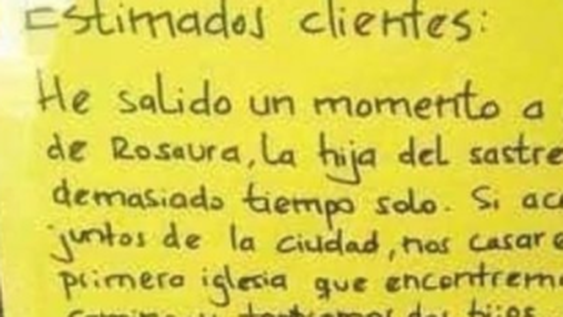 Estimados clientes:
He salido un momento a
de Rosaura, la hija del sastre
demasiado tiempo solo. Si
juntos de la ciudad, nos
primera iglesia que
hijos